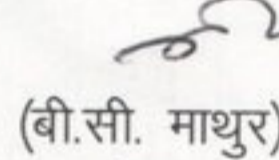 (बी.सी. माथुर)